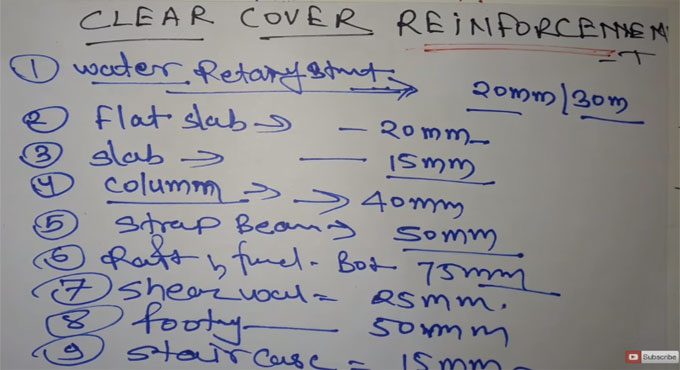 CLEAR COVER REINFORCEMENT
① water Retarystrut. → 20mm/30m
② flat slab → - 20mm
③ slab → — 15mm
④ columm → → 40mm
⑤ strap Bean → 50mm
⑥ Raft, fund - Bot 75mm
⑦ shear wall = 25mm.
⑧ footy — 50mm
⑨ staircase = 15mm
Subscribe